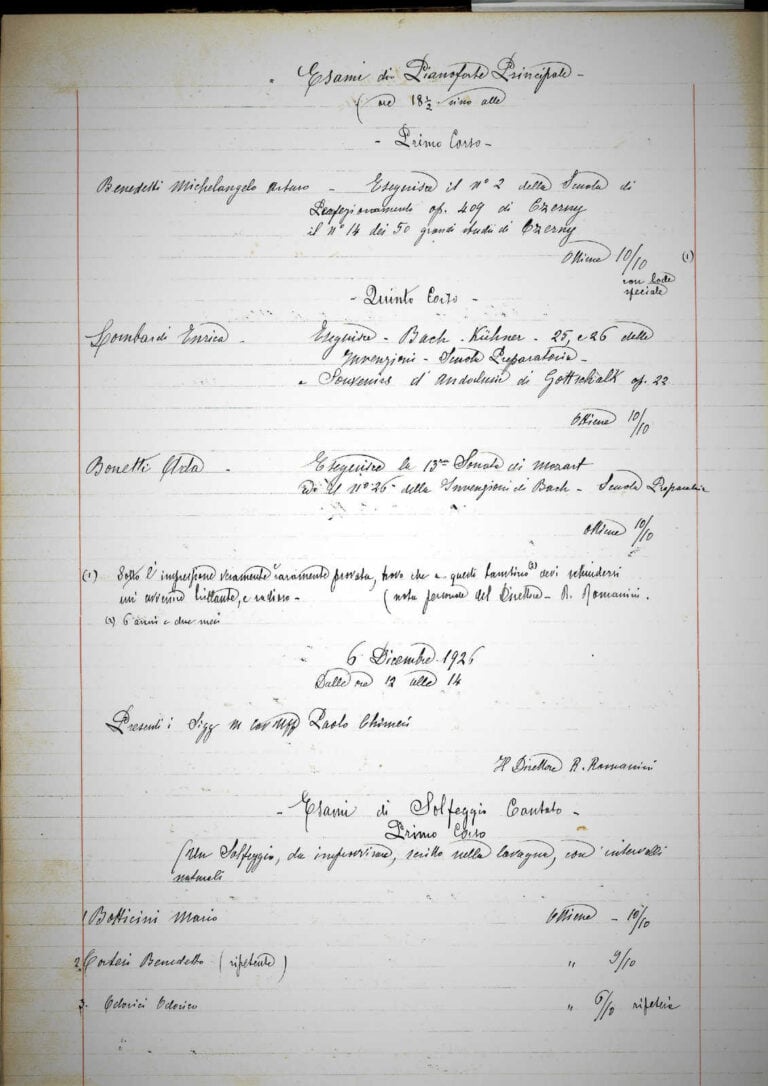 Esami di Pianoforte Principale -
(ore 18½ sino alle
- Primo Corso -
Benedetti Michelangelo Arturo - Eseguisce il n° 2 della Scuola di
Perfezionamento op. 409 di Czerny
il n° 14 dei 50 grandi studi di Czerny
Ottiene 10/10 (1)
con lode
speciale
- Quinto Corso -
Lombardi Enrica - Eseguisce - Bach - Kühner - 25, e 26 delle
Invenzioni - Scuola Preparatoria -
e Souvenirs d'Andalusie di Gottschalk op. 22
Ottiene 10/10
Bonetti Ada - Eseguisce la 13ma Sonata di Mozart
Il N° 26 della Invenzioni di Bach - Scuola Preparatoria
Ottiene 10/10
(1) Sotto l'impressione veramente raramente provata, trovo che a questo bambino (2) devi schiudersi
un avvenire brillante, e radioso - (nota personale del Direttore - R. Romanini.
(2) 6 anni e due mesi
6 Dicembre 1926
Dalle ore 12 alle 14
Presenti i Sigg Paolo Chimeri
Il Direttore R. Romanini
- Esami di Solfeggio Cantato -
Primo Corso
(Un Solfeggio, da improvvisare, scritto nella lavagna, con intervalli
naturali
1 Botticini Mario Ottiene - 10/10
2. Cortesi Benedetto (ripetente) " 9/10
3. Odorici Odorico " 6/10 ripetere